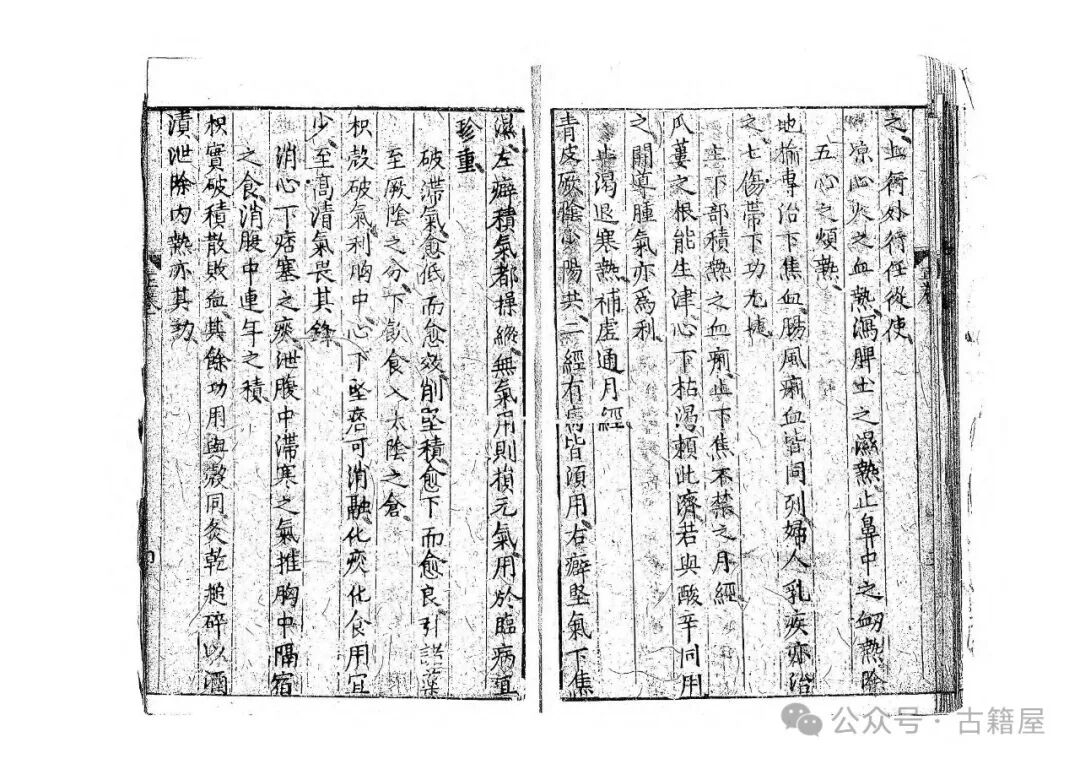 之止衍外行任從使
凉心火之血熱瀉脾土之濕熱止鼻中之衂熱除
五心之煩熱
地榆專治下焦血腸風痢血皆同列婦人乳疾亦治
之七傷帶下功尤捷
主下部積熱之血痢止下焦不禁之月經
瓜蔞之根能生津心下枯渴賴此濟若與酸辛同用
之開導腫氣亦爲利
止渴退寒熱補虛通月經
青皮厥陰少陽共二經有病皆須用右癖堅氣下焦
濕左癖積氣都操縱無氣用則損元氣用於臨病宜
珍重
破滯氣愈低而愈效削堅積愈下而愈良引諸藥
至厥陰之分下飲食入太陰之倉
枳殼破氣利胸中心下堅痞可消融化痰化食用宜
少至高清氣畏其鋒
消心下痞塞之痰泄腹中滯寒之氣推胸中隔宿
之食消腹中連年之積
枳實破積散敗血其餘功用與殼同灸乾搥碎以酒
漬泄除内熱亦其功
公众号·古籍屋